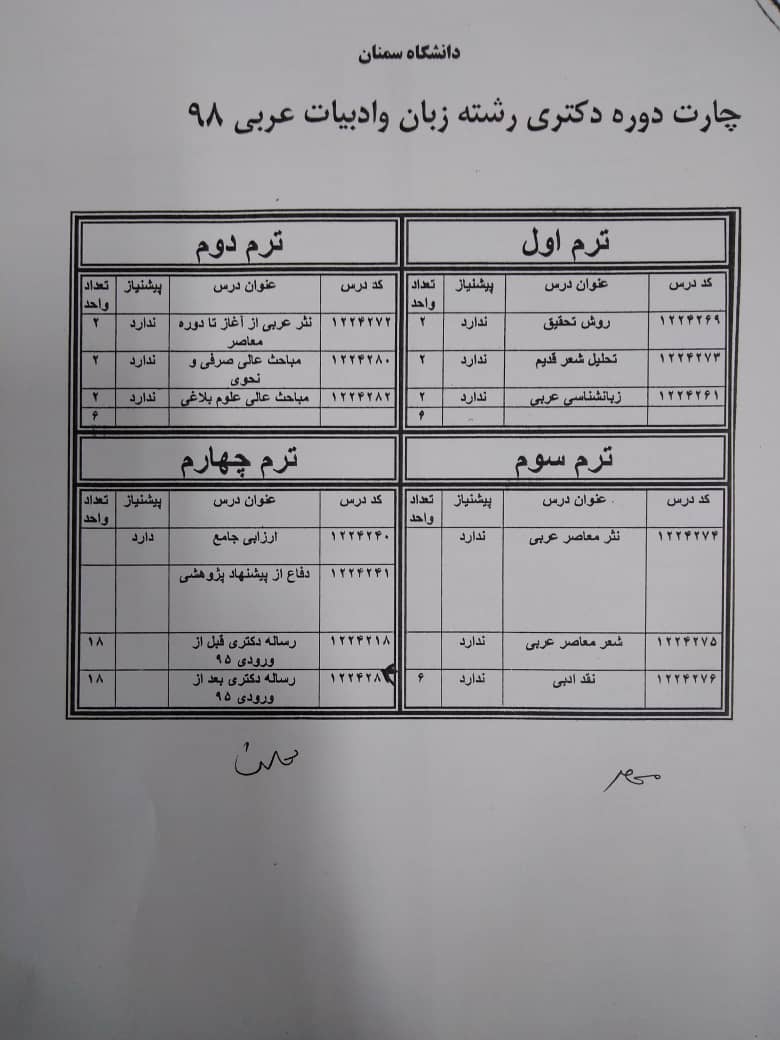 دانشگاه سمنان
چارت دوره دکتری رشته زبان وادبیات عربی ۹۸
ترم اول
کد درس عنوان درس پیشنیاز تعداد واحد
۱۲۲۴۲۶۹ روش تحقیق ندارد ۲
۱۲۲۴۲۷۳ تحلیل شعر قدیم ندارد ۲
۱۲۲۴۲۶۱ زبانشناسی عربی ندارد ۲
۶
ترم دوم
کد درس عنوان درس پیشنیاز تعداد واحد
۱۲۲۴۲۷۲ نثر عربی از آغاز تا دوره معاصر ندارد ۲
۱۲۲۴۲۸۰ مباحث عالی صرفی و نحوی ندارد ۲
۱۲۲۴۲۸۲ مباحث عالی علوم بلاغی ندارد ۲
۶
ترم سوم
کد درس عنوان درس پیشنیاز تعداد واحد
۱۲۲۴۲۷۴ نثر معاصر عربی ندارد
۱۲۲۴۲۷۵ شعر معاصر عربی ندارد
۱۲۲۴۲۷۶ نقد ادبی ندارد ۶
ترم چهارم
کد درس عنوان درس پیشنیاز تعداد واحد
۱۲۲۴۲۴۰ ارزابی جامع دارد
۱۲۲۴۲۴۱ دفاع از پیشنهاد پژوهشی
۱۲۲۴۲۱۸ رساله دکتری قبل از ورودی ۹۵ ۱۸
رساله دکتری بعد از ورودی ۹۵ ۱۸